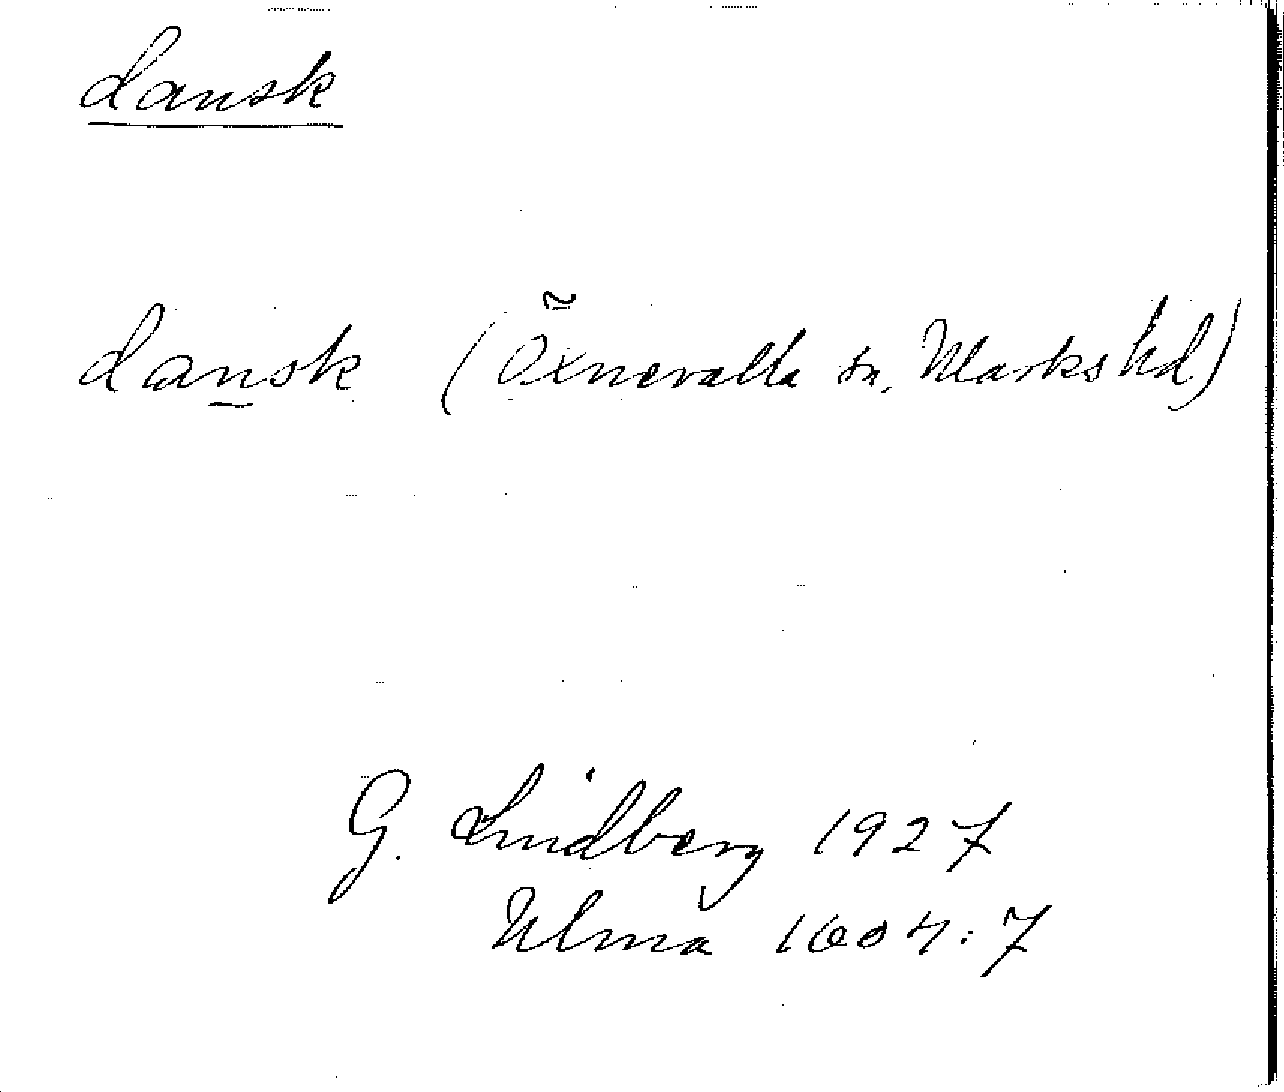 dansk
dansk (Öxnevalla sn, Marks hd)
G. Lindberg 1927
Ulma 1604:7